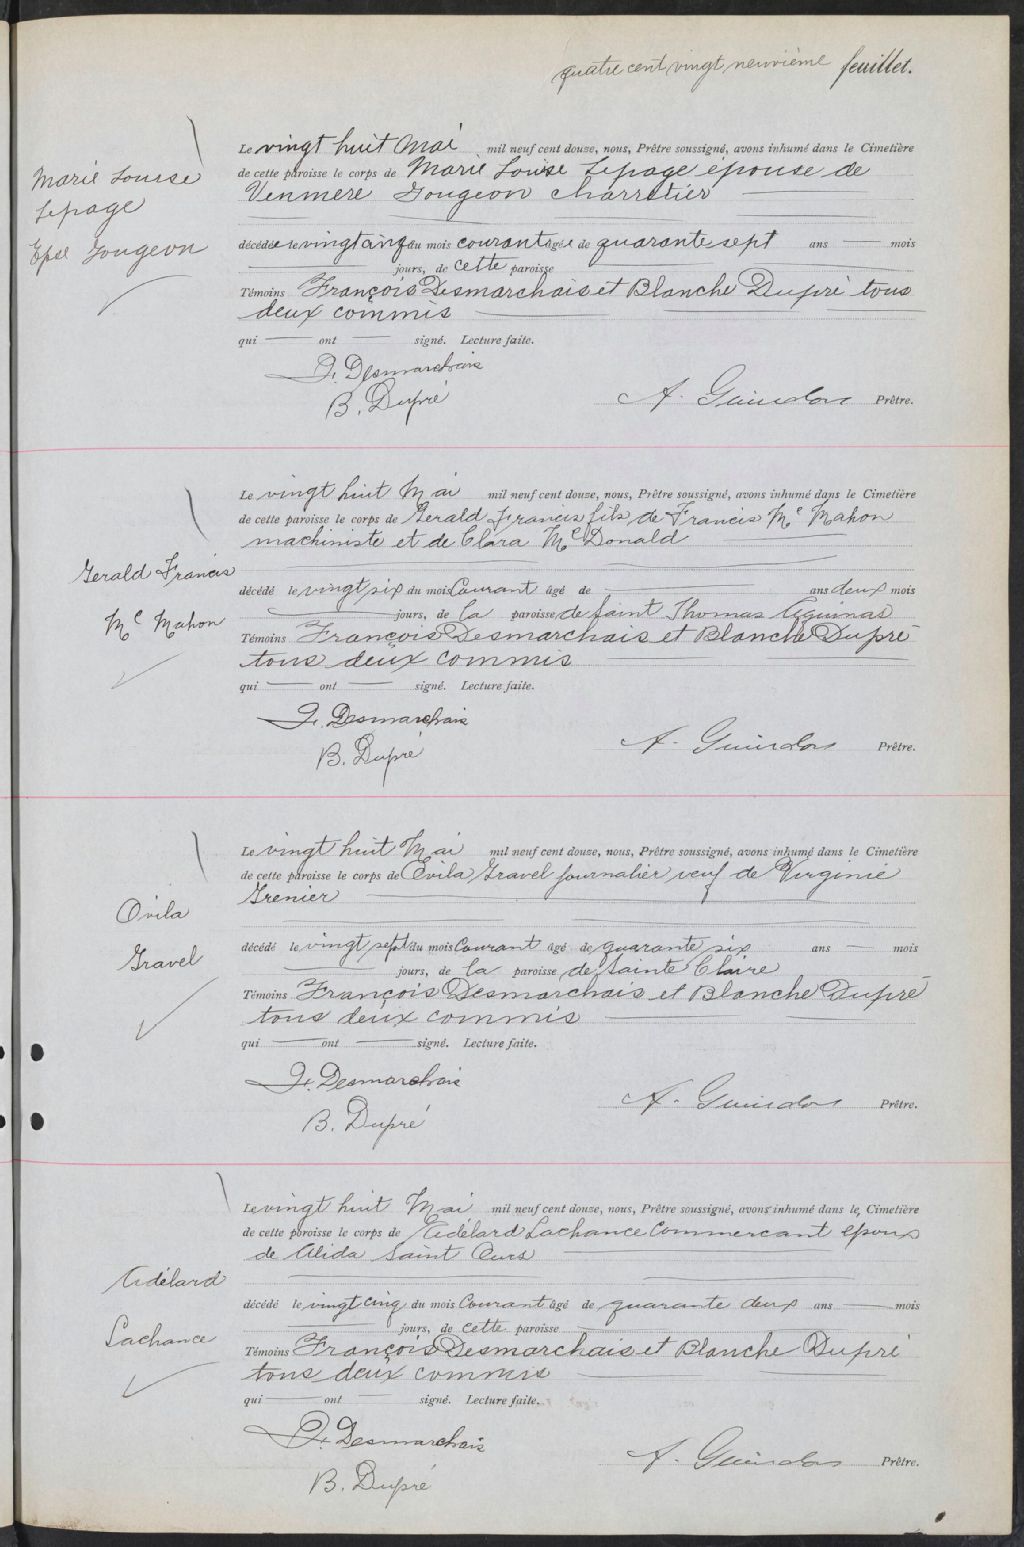 quatre cent vingt neuvième feuillet.
Marie Louise
Lepage
Epse Gougeon
Le vingt huit Mai mil neuf cent douse, nous, Prêtre soussigné, avons inhumé dans le Cimetière
de cette paroisse le corps de Marie Louise Lepage épouse de
Venmere Gougeon charretier
décédée le vingt cinq du mois courant âgée de quarante sept ans — mois
jours, de cette paroisse
Témoins François Desmarchais et Blanche Dupré tous
deux commis
qui — ont — signé. Lecture faite.
F. Desmarchais
B. Dupré
A. Guindon Prêtre.
Gerald Francis
Mc Mahon
Le vingt huit Mai mil neuf cent douse, nous, Prêtre soussigné, avons inhumé dans le Cimetière
de cette paroisse le corps de Gerald Francis fils de Francis Mc Mahon
machiniste et de Clara Mc Donald
décédé le vingt six du mois Courant âgé de — ans deux mois
jours, de la paroisse de Saint Thomas Aquinas
Témoins François Desmarchais et Blanche Dupré
tous deux commis
qui — ont — signé. Lecture faite.
F. Desmarchais
B. Dupré
A. Guindon Prêtre.
Ovila
Gravel
Le vingt huit Mai mil neuf cent douse, nous, Prêtre soussigné, avons inhumé dans le Cimetière
de cette paroisse le corps de Ovila Gravel journalier veuf de Virginie
Grenier
décédé le vingt sept du mois Courant âgé de quarante six ans — mois
jours, de la paroisse de Sainte Claire
Témoins François Desmarchais et Blanche Dupré
tous deux commis
qui — ont — signé. Lecture faite.
F. Desmarchais
B. Dupré
A. Guindon Prêtre.
Adélard
Lachance
Le vingt huit Mai mil neuf cent douse, nous, Prêtre soussigné, avons inhumé dans le Cimetière
de cette paroisse le corps de Adélard Lachance Commercant epoux
de Alida Saint Ours
décédé le vingt cinq du mois Courant âgé de quarante deux ans — mois
jours, de cette paroisse
Témoins François Desmarchais et Blanche Dupré
tous deux commis
qui — ont — signé. Lecture faite.
F. Desmarchais
B. Dupré
A. Guindon Prêtre.